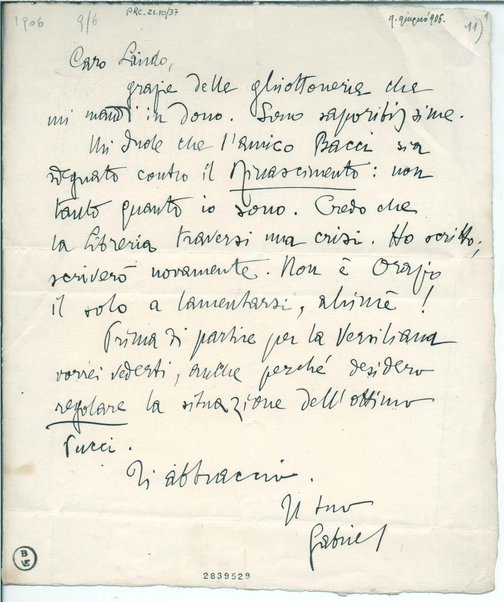 1906 9/6 PRC. 21.10/37 9. giugno 906. 11)
Caro Lindo,
grazie delle ghiottonerie che
mi mandi in dono. Sono saporitissime.
Mi duole che l'amico Bacci sia
sdegnato contro il Rinascimento: non
tanto quanto io sono. Credo che
la Libreria traversi una crisi. Ho scritto;
scriverò novamente. Non è Orazio
il solo a lamentarsi, ahimè!
Prima di partire per la Versiliana
vorrei vederti, anche perché desidero
regolare la situazione dell'ottimo
Pucci.
Ti abbraccio.
Il tuo
Gabriel
2839529